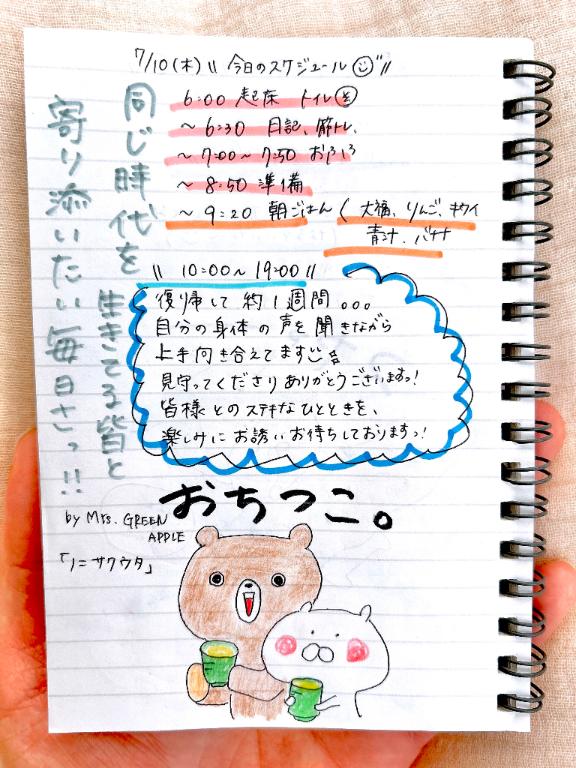 7/10(木) \\ 今日のスケジュール ☺ //
6:00 起床 トイレ
～6:30 日記、筋トレ
～7:00～7:50 おふろ
～8:50 準備
～9:20 朝ごはん (大福、りんご、キウイ
青汁、バナナ
\\ 10:00～19:00 //
復帰して約1週間。。。
自分の身体の声を聞きながら
上手向き合えてますじ
見守ってくださりありがとうございますっ!
皆様とのステキなひとときを、
楽しみにお誘いお待ちしておりますっ!
同じ時代を生きてる皆と
寄り添いたい毎日さっ!!
by Mrs. GREEN
APPLE
「ノニサクウタ」
おちつこ。